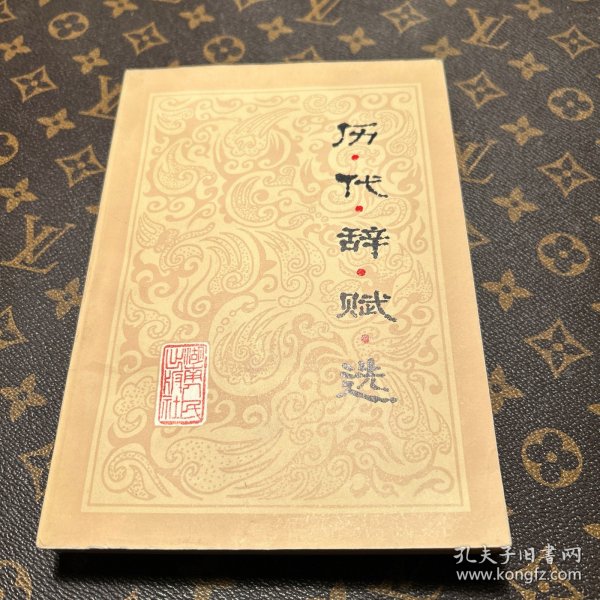 历·代·辞·赋·选
湖南人民
出版社
孔夫子旧书网
www.kongfz.com